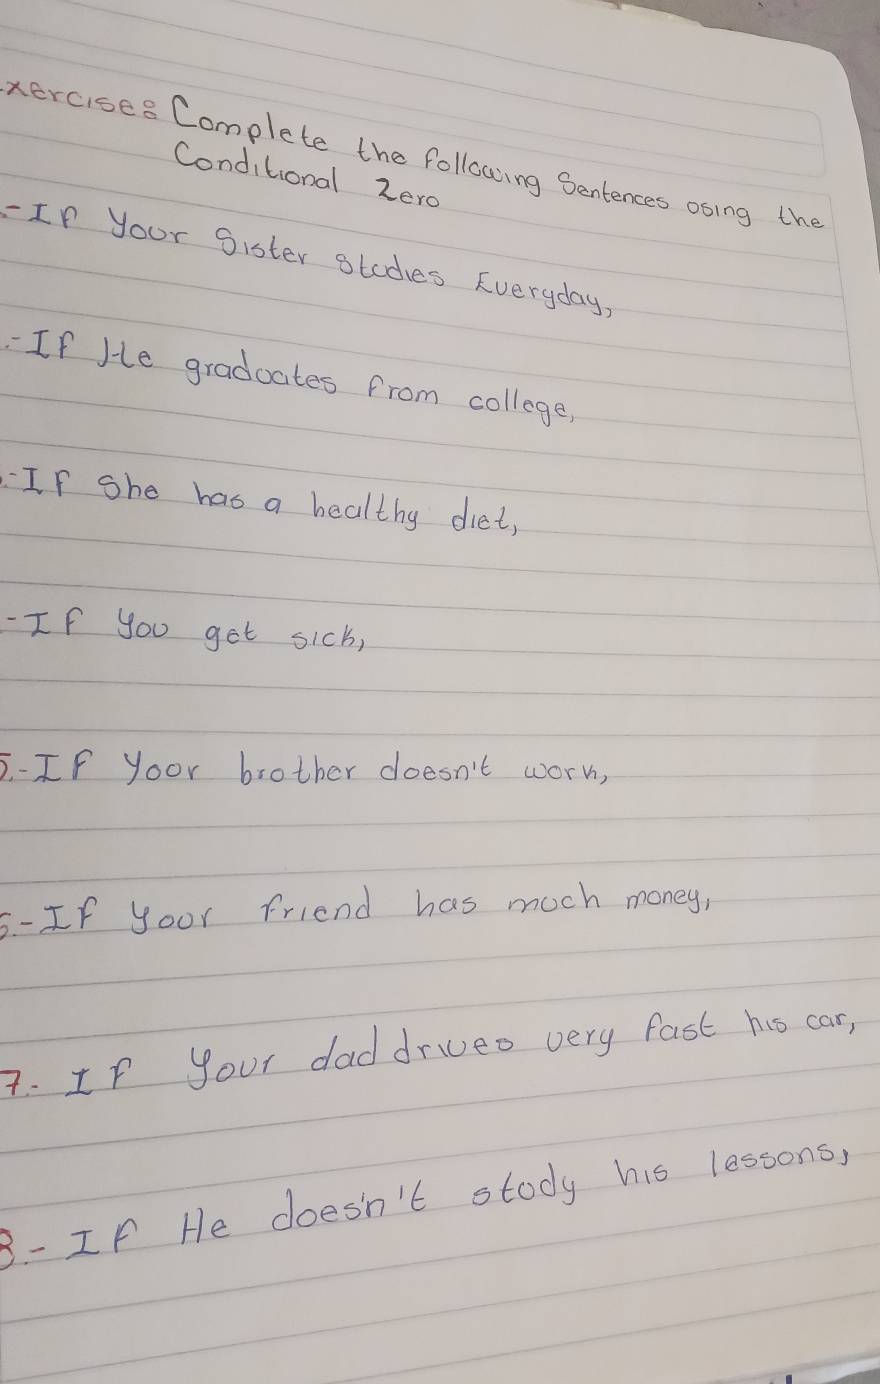 xercise: Complete the following Sentences using the
Conditional Zero
.- If your Sister studies Everyday,
.- If He graduates from college,
.- If She has a healthy diet,
.- If you get sick,
5.- If your brother doesn't work,
6.- If your friend has much money,
7.- If your dad drives very fast his car,
8.- If He doesn't study his lessons,